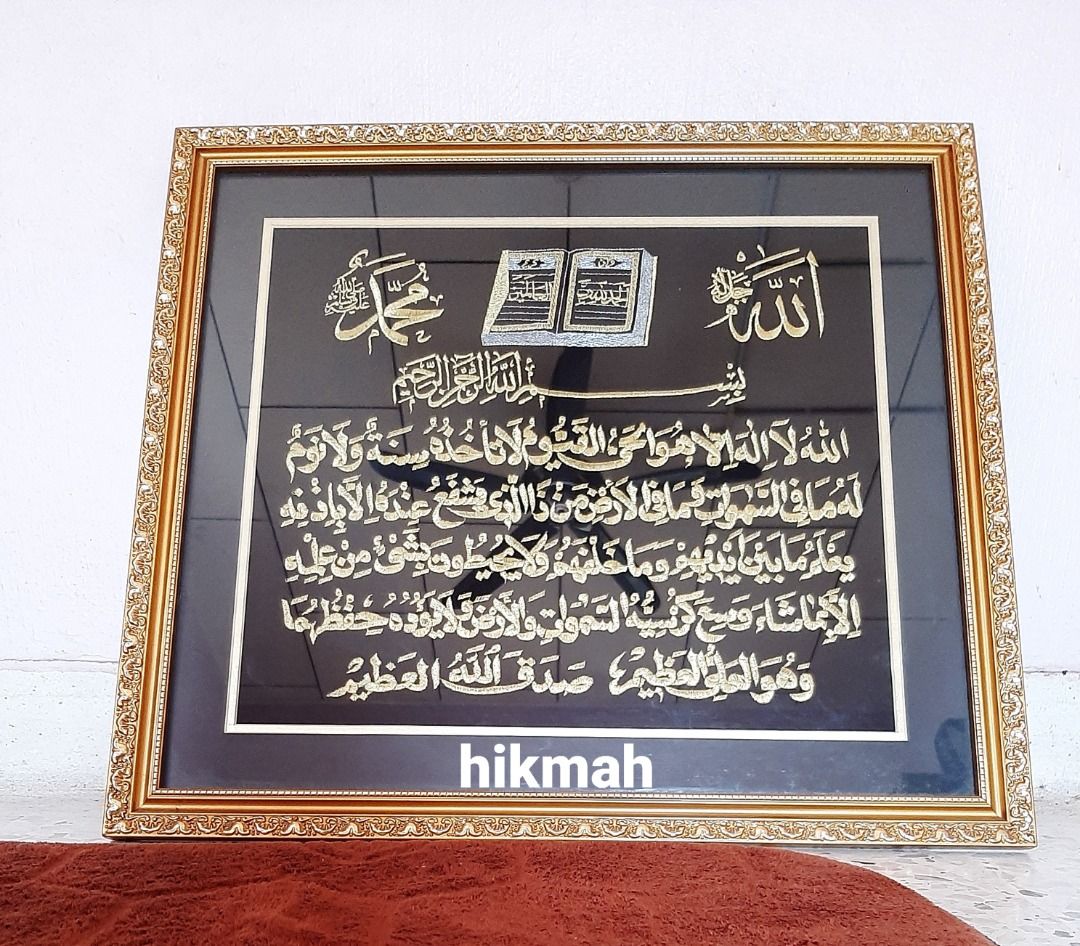 الله جل جلاله
محمد صلى الله عليه وسلم
بسم الله الرحمن الرحيم
الله لا اله الا هو الحي القيوم لا تأخذه سنة ولا نوم
له ما في السموات وما في الأرض من ذا الذي يشفع عنده الا باذنه
يعلم ما بين أيديهم وما خلفهم ولا يحيطون بشيء من علمه
الا بما شاء وسع كرسيه السموات والأرض ولا يؤوده حفظهما
وهو العلي العظيم صدق الله العظيم
hikmah